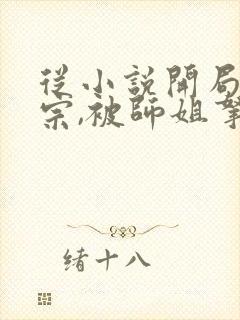 從小說開局
宗,被師姐
緒十八